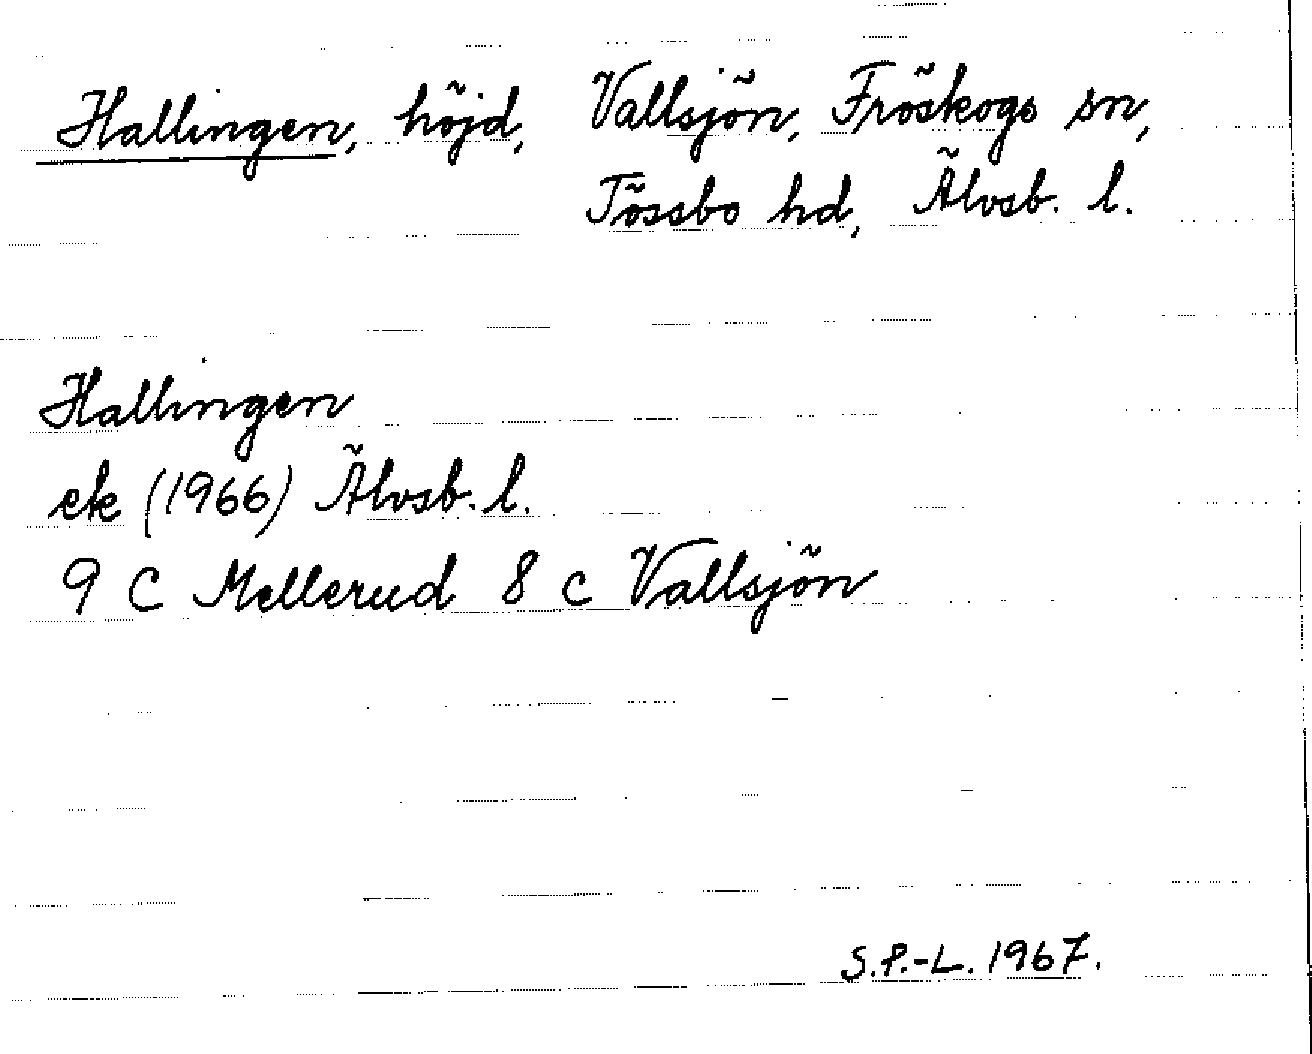 Hallingen, höjd, Vallsjön, Fröskogs sn,
Tössbo hd, Älvsb. l.
Hallingen
ek (1966) Älvsb. l.
9 C Mellerud 8 c Vallsjön
S.P.-L. 1967.